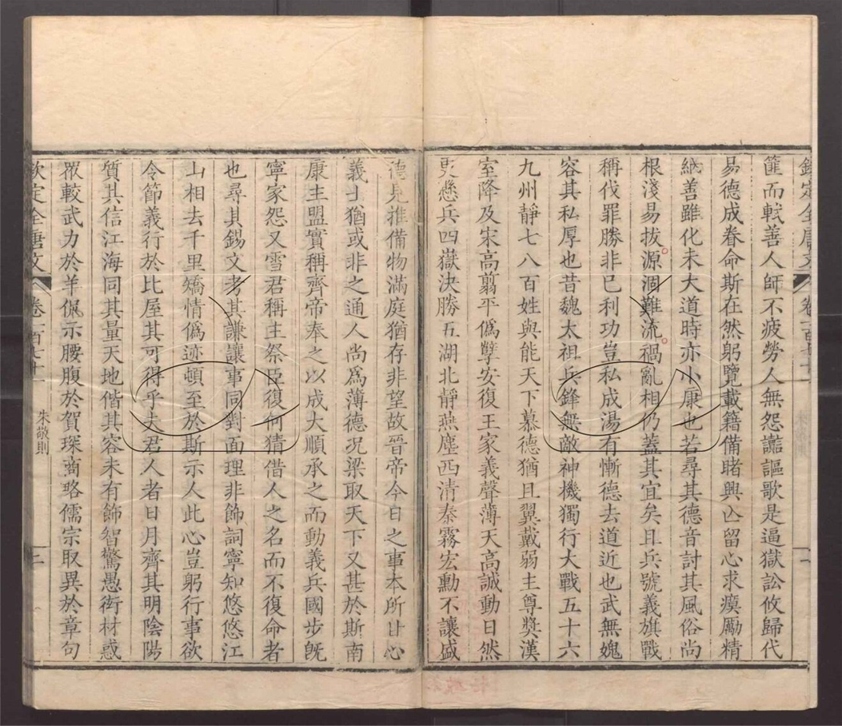 欽定全唐文 卷一百七十一
筐而軾善人師不疲勞人無怨讟謳歌是逼獄訟攸歸代
易德成眷命斯在然躬覽載籍備睹興亾留心求瘼勵精
繼善雖化未大道時亦小康也若尋其德音討其風俗尚
根淺易拔源涸難流禍亂相仍蓋其宜矣且兵號義旗戰
稱伐罪勝非已利功豈私成湯有慚德去道近也武無媿
容其私厚也昔魏太祖兵鋒無敵神機獨行大戰五十六
九州靜七八百姓與能天下慕德猶且翼戴弱主尊獎漢
室降及宋高翦平僞孽安復王家義聲薄天高誠動日然
更懸兵四嶽決勝五湖北靜燕塵西清秦霧宏勳不讓盛
德見推備物滿庭猶存非望故晉帝今日之事本所甘心
義士猶或非之通人尚爲薄德况梁取天下又甚於斯南
康主盟實稱齊帝奉之以成大順承之而動義兵國步旣
寧家怨又雪君稱主祭臣復何猜借人之名而不復命者
也尋其錫文考其謙讓事同對面理非飾詞寧知悠悠江
山相去千里矯情僞迹頓至於斯示人此心豈躬行事欲
令節義行於比屋其可得乎夫君人者日月齊其明陰陽
質其信江海同其量天地偕其容未有飾智驚愚衒材惑
眾較武力於羊侃示腰腹於賀琛商略儒宗取異於章句
欽定全唐文 卷一百七十一 朱敬則 二